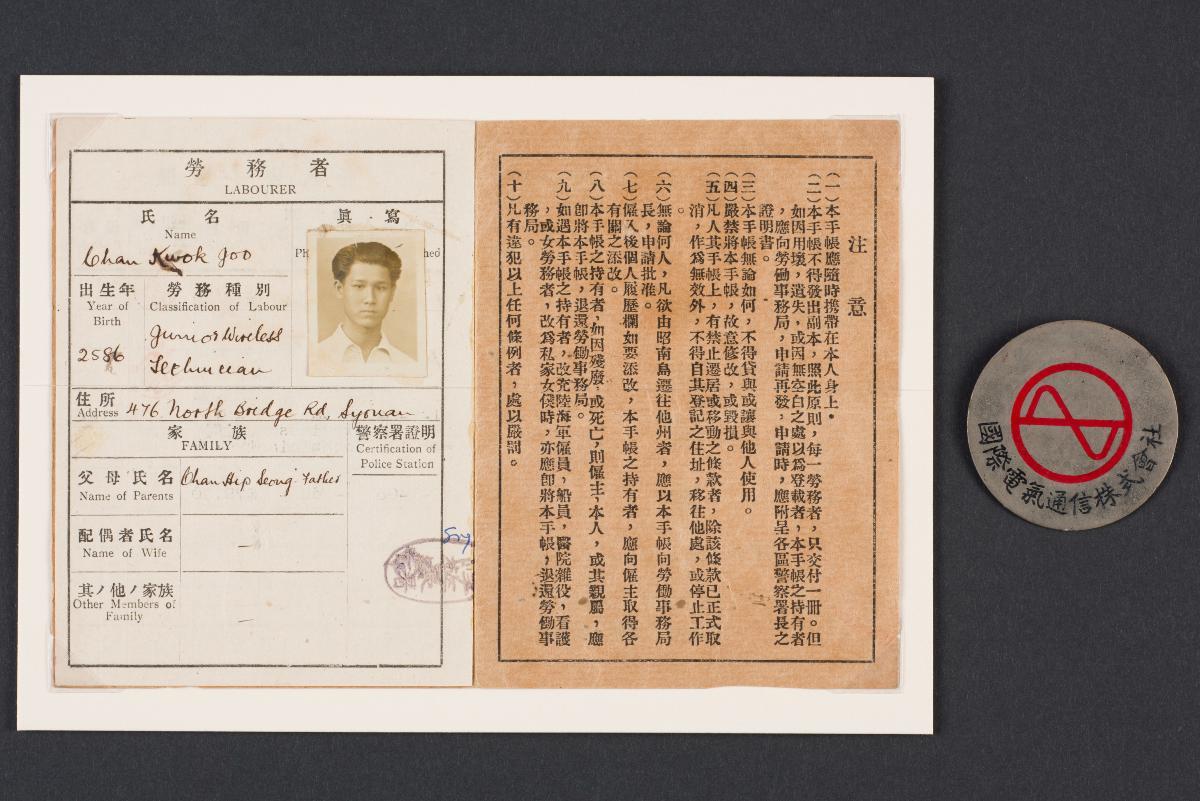 勞務者
LABOURER
氏名
Name
Chan Kwok Joo
眞寫
Ph
hed
出生年
Year of
Birth
2586
勞務種別
Classification of Labour
Junior Wireless
Technician
住所
Address
476 North Bridge Rd, Syonan
家族
FAMILY
警察署證明
Certification of
Police Station
父母氏名
Name of Parents
Chan Hip Seong Father
配偶者氏名
Name of Wife
—
其ノ他ノ家族
Other Members of
Family
—
Sy
注意
(一)本手帳應隨時携帶在本人身上。
(二)本手帳不得發出副本,照此原則,每一勞務者,只交付一冊。但
如因用壞,遺失,或因無空白之處以爲登載者,本手帳之持有者
,應向勞働事務局,申請再發,申請時,應附呈各區警察署長之
證明書。
(三)本手帳無論如何,不得貸與或讓與他人使用。
(四)嚴禁將本手帳,故意修改,或毀損。
(五)凡人其手帳上,有禁止遷居或移動之條款者,除該條款已正式取
消,作爲無效外,不得自其登記之住址,移往他處,或停止工作
。
(六)無論何人,凡欲由昭南島遷往他州者,應以本手帳向勞働事務局
長,申請批准。
(七)僱入後個人履歷欄如要添改,本手帳之持有者,應向僱主取得各
有關之添改。
(八)本手帳之持有者,如因殘廢,或死亡,則僱主,本人,或其親屬,應
卽將本手帳,退還勞働事務局。
(九)如遇本手帳之持有者,改充陸海軍僱員,船員,醫院雜役,看護
,或女勞務者,改爲私家女僕時,亦應卽將本手帳,退還勞働事
務局。
(十)凡有違犯以上任何條例者,處以嚴罰。
國際電氣通信株式會社